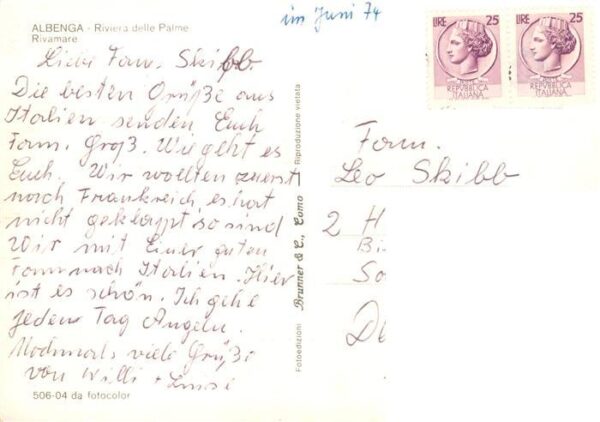 ALBENGA - Riviera delle Palme
Rivamare
im Juni 74
Liebe Fam. Skibb
Die besten Grüße aus
Italien senden Euch
Fam. Groß. Wie geht es
Euch. Wir wollten zuerst
nach Frankreich es hat
nicht geklappt so sind
Wir mit Einer guten
Fam nach Italien. Hier
ist es schön. Ich gehe
jeden Tag Angeln.
Nochmals viele Grüße
von Willi + Luise
506-04 da fotocolor
Fotoedizioni Brunner & C., Como - Riproduzione vietata
LIRE 25
REPVBBLICA
ITALIANA
LIRE 25
REPVBBLICA
ITALIANA
Fam.
Leo Skibb
2 H
Bi
So
De